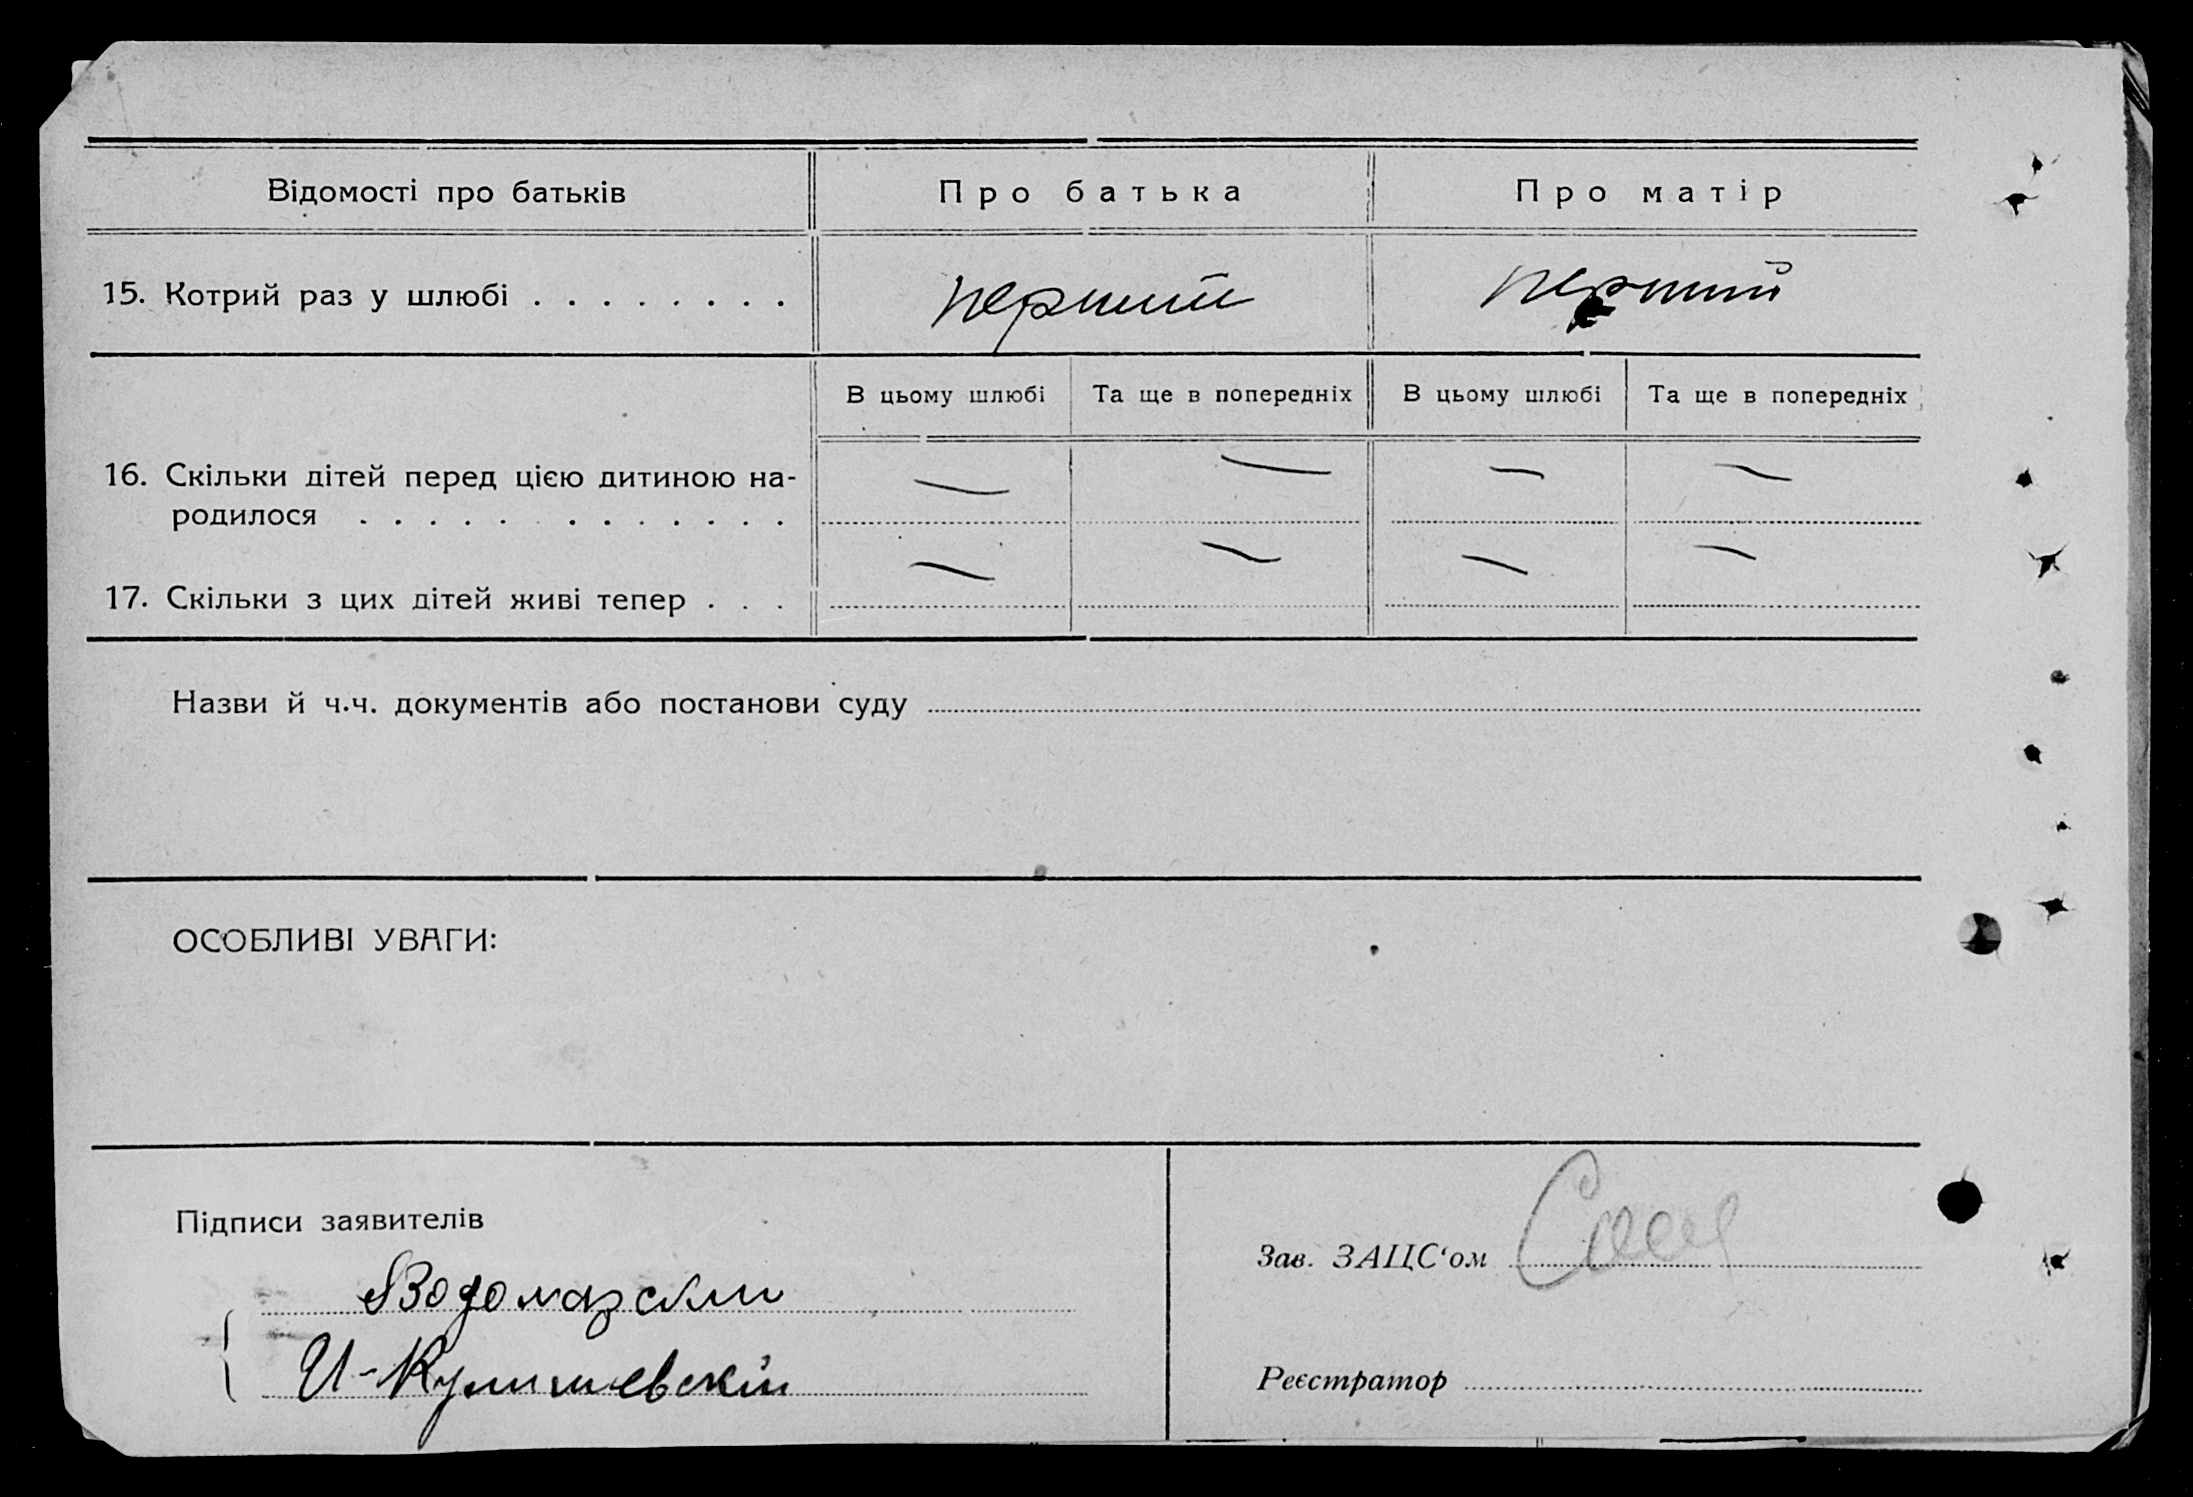 Відомості про батьків
Про батька
Про матір
15. Котрий раз у шлюбі . . . . . . . .
перший
перший
В цьому шлюбі
Та ще в попередніх
В цьому шлюбі
Та ще в попередніх
16. Скільки дітей перед цією дитиною на-
родилося . . . . . . . . . . . . .
— — — —
17. Скільки з цих дітей живі тепер . . .
— — — —
Назви й ч.ч. документів або постанови суду
ОСОБЛИВІ УВАГИ:
Підписи заявителів
Зав. ЗАЦС‘ом
Реєстратор